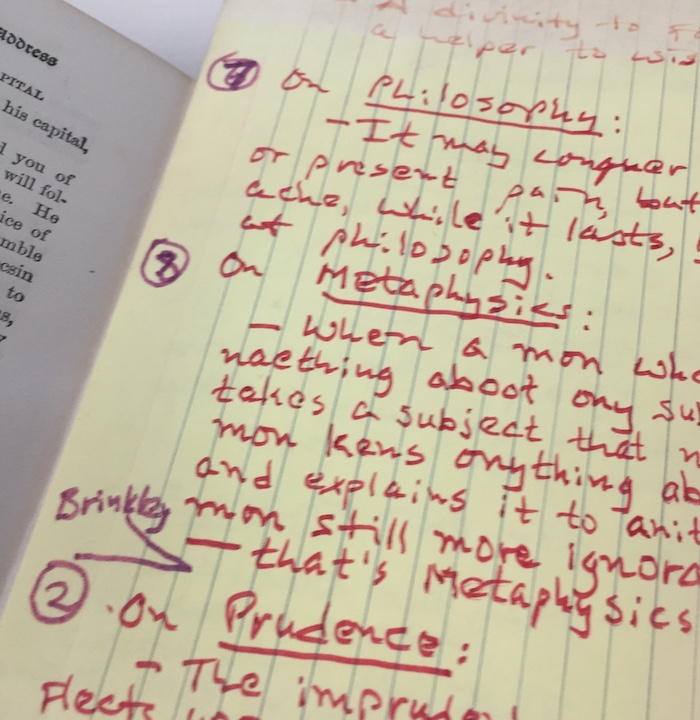 address
PITAL
his capital,
l you of
will fol-
e. He
ice of
mble
csin
to
s,
A divinity to
a helper to
7 On Philosophy:
- It may conquer
or present pain, but
ache, while it lasts,
at philosophy.
8 On Metaphysics:
- When a mon
naething aboot ony su
takes a subject that n
mon kens onything ab
and explains it to anit
Brinkley
mon still more ignora
- that's Metaphysics
2 . On Prudence:
- The impruden
Fleets